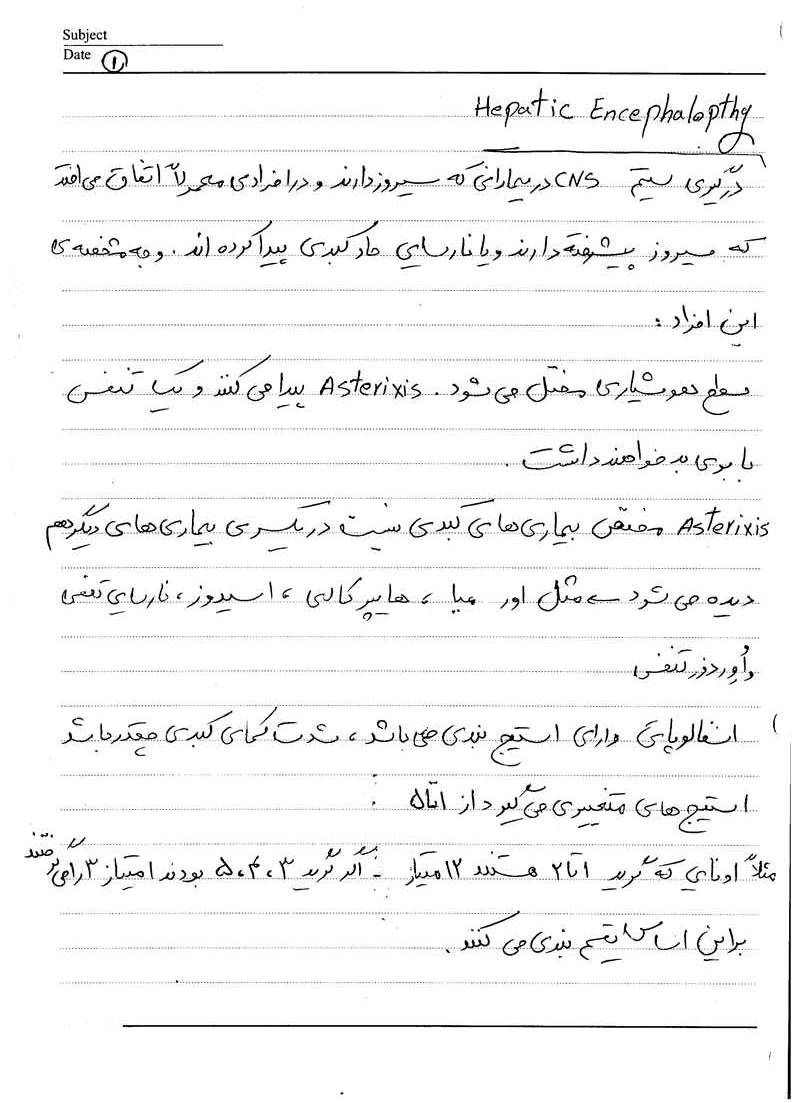 Subject
Date ①
Hepatic Encephalopthy
درگیری سیتم CNS در بیمارانی که سیروز دارند و در افرادی معمولاً اتفاق می افتد
که سیروز پیشرفته دارند و یا نارسایی حاد کبدی پیدا کرده اند. وجه مشخصه ی
این افراد :
سطح هوشیاری مختل می شود. Asterixis پیدا می کنند و یک تنفس
با بوی بد خواهند داشت.
Asterixis مختص بیماری های کبدی نیست در یکسری بیماری های دیگر هم
دیده می شود مثل اور میا ، هایپر کالمی ، اسیدوز ، نارسایی تنفسی
و اُوردوز تنفسی
انسفالوپاتی دارای استیج بندی می باشد ، شدت کمای کبدی چقدر باشد
استیج های متغییری می گیرد از ۱ تا ۵ :
مثلاً اونایی که گرید ۱ تا ۲ هستند ۲ امتیاز - اگر گرید ۳ ، ۴ ، ۵ بودند امتیاز ۳ را می گرفتند
بر این اساس تقسیم بندی می کنند.